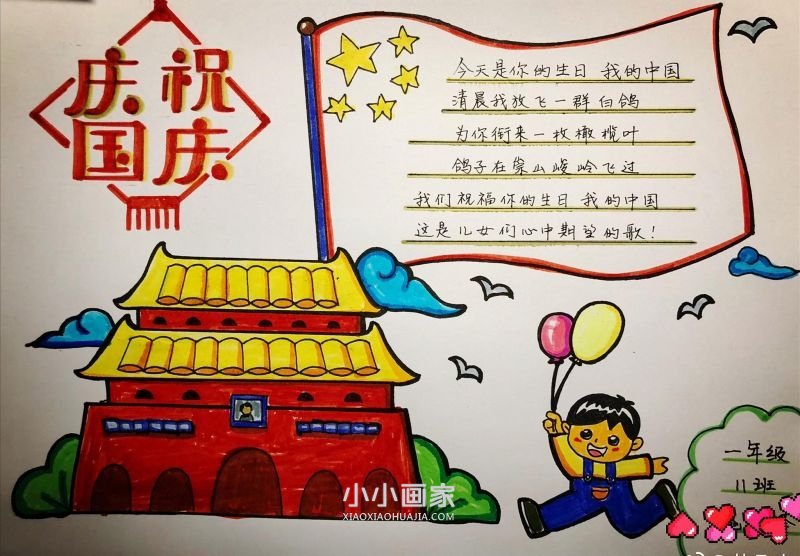 庆祝
国庆
今天是你的生日 我的中国
清晨我放飞一群白鸽
为你衔来一枚橄榄叶
鸽子在崇山峻岭飞过
我们祝福你的生日 我的中国
这是儿女们心中期望的歌!
一年级
11班
小小画家
XIAOXIAOHUAJIA.COM